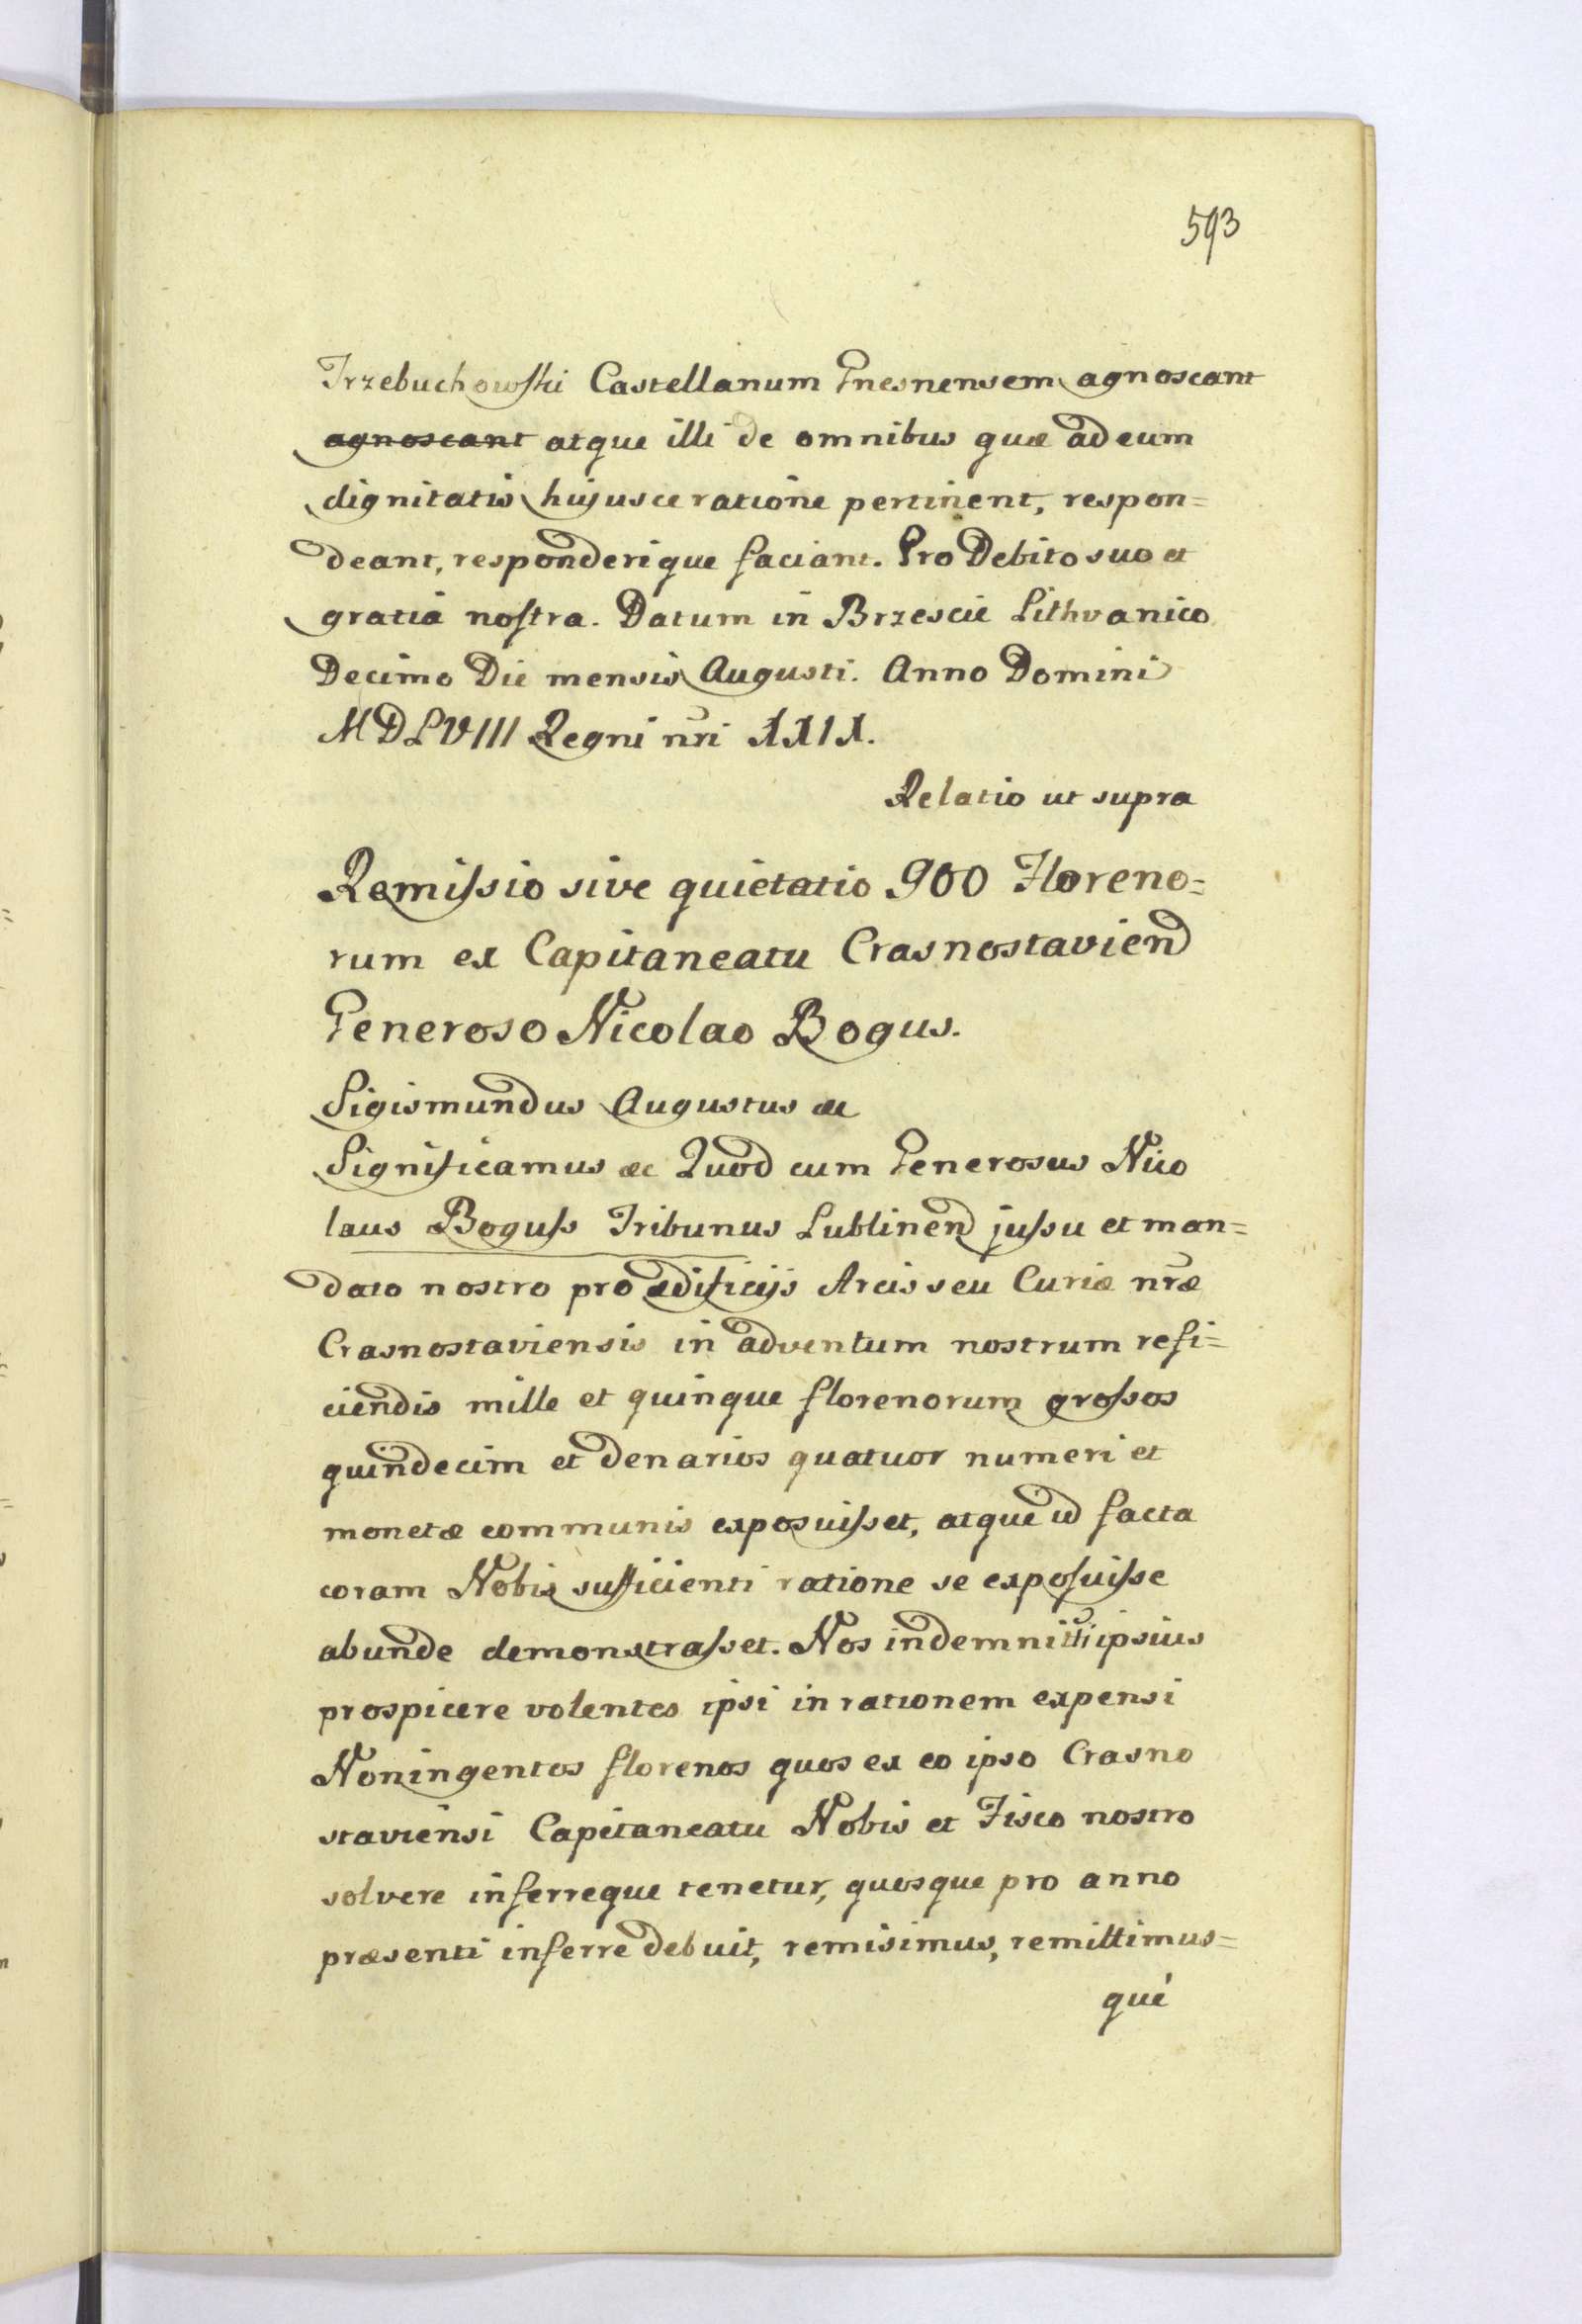 593
Trzebuchowski Castellanum Gnesnensem agnoscant
agnoscant atque illi de omnibus quæ ad eum
dignitatis hujusce ratione pertinent, respon=
deant, responderique faciant. Pro Debito suo et
gratia nostra. Datum in Brzescie Lithvanico
Decimo Die mensis Augusti. Anno Domini
MDLVIII Regni nri XXIX.
Relatio ut supra
Remissio sive quietatio 900 Floreno=
rum ex Capitaneatu Crasnostavien
Generoso Nicolao Bogus.
Sigismundus Augustus &c
Significamus &c Quod cum Generosus Nico
laus Boguss Tribunus Lublinen jussu et man=
dato nostro pro ædificijs Arcis seu Curiæ nræ
Crasnostaviensis in adventum nostrum refi=
ciendis mille et quinque florenorum grossos
quindecim et denarios quatuor numeri et
monetæ communis exposuisset, atque id facta
coram Nobis sufficienti ratione se exposuisse
abunde demonstrasset. Nos indemnitti ipsius
prospicere volentes ipsi in rationem expensi
Noningentos florenos quos ex eo ipso Crasno
staviensi Capitaneatu Nobis et Fisco nostro
solvere inferreque tenetur, quosque pro anno
præsenti inferre debuit, remisimus, remittimus=
que